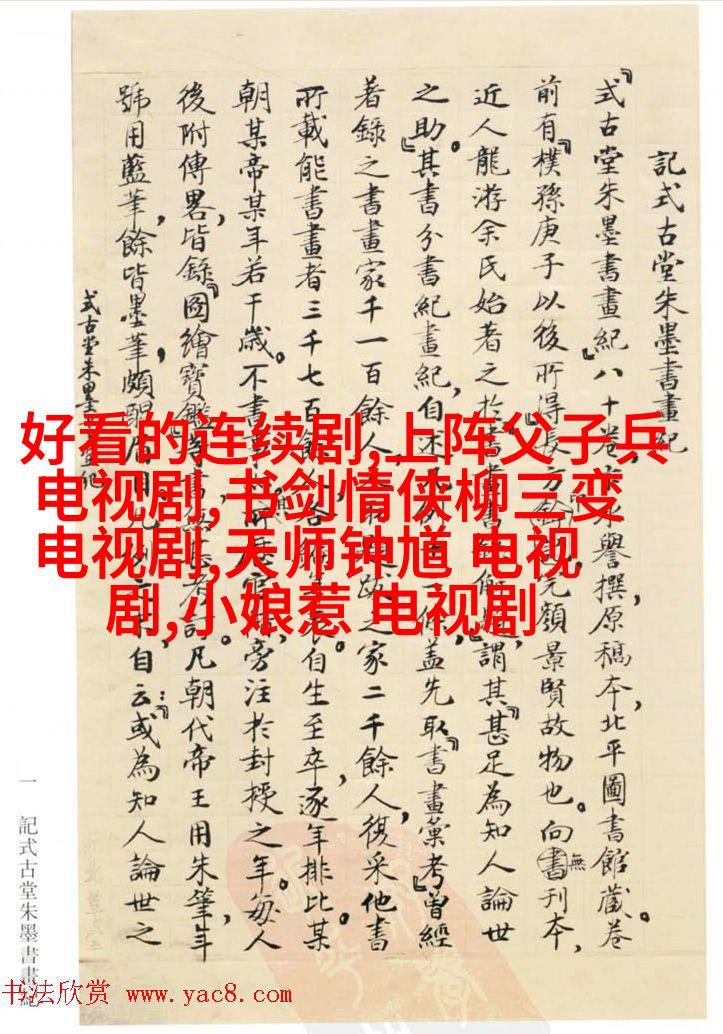 記式古堂朱墨書畫紀
『式古堂朱墨書畫紀』八十卷,卞永譽撰,原稿本,北平圖書館藏。卷
前有『樸孫庚子以後所得』長方鈐記,完顏景賢故物也。向無刊本,
近人龍游余氏始著之於書畫書錄解題,謂其『甚足為知人論世
之助。』其書分書紀畫紀,自述凡例 條,蓋先取『書畫彙考』曾經
著錄之書畫家千一百餘人, 題跋之家二千餘人,復采他書
所載能書畫者三千七百餘人,各 自生至卒,逐年排比某
朝某帝某年若干歲。不書事 旁注於封授之年。每人
後附傳畧,皆錄『圖繪寶鑑』等書 凡朝代帝王用朱筆,年
號用藍筆,餘皆墨筆,頗醒眉目。 自云:『或為知人論世之
式古堂朱墨書畫紀
一 記式古堂朱墨書畫紀
好看的连续剧,上阵父子兵
电视剧,书剑情侠柳三变
电视剧,天师钟馗 电视
剧,小娘惹 电视剧
书法欣赏 www.yac8.com